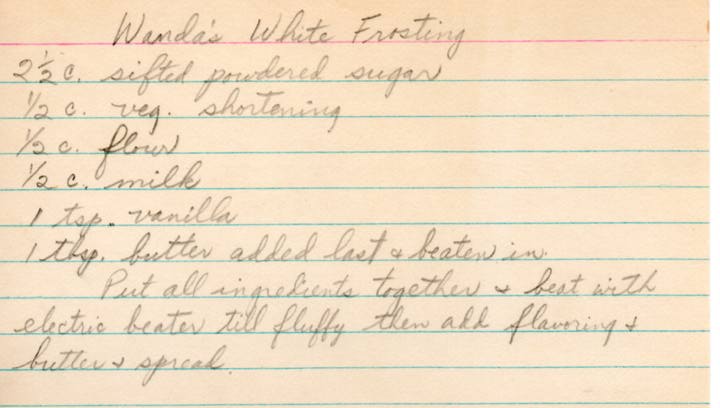 Wanda's White Frosting
2 1/2 c. sifted powdered sugar
1/2 c. veg. shortening
1/2 c. flour
1/2 c. milk
1 tsp. vanilla
1 tbsp. butter added last & beaten in.
Put all ingredients together & beat with
electric beater till fluffy then add flavoring &
butter & spread.